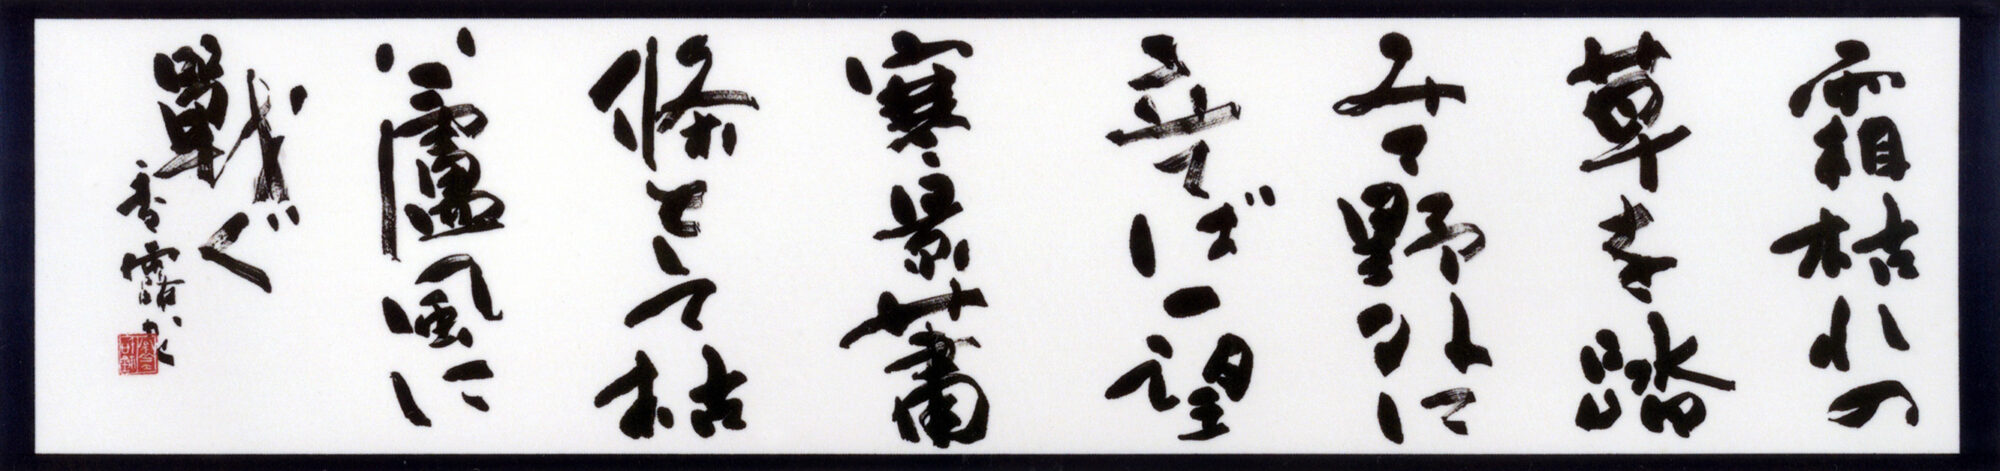 霜枯れの
草を踏
みて野外に
ば一望
寒景蕭
條として枯
蘆風に
戰ぐ
香露かく